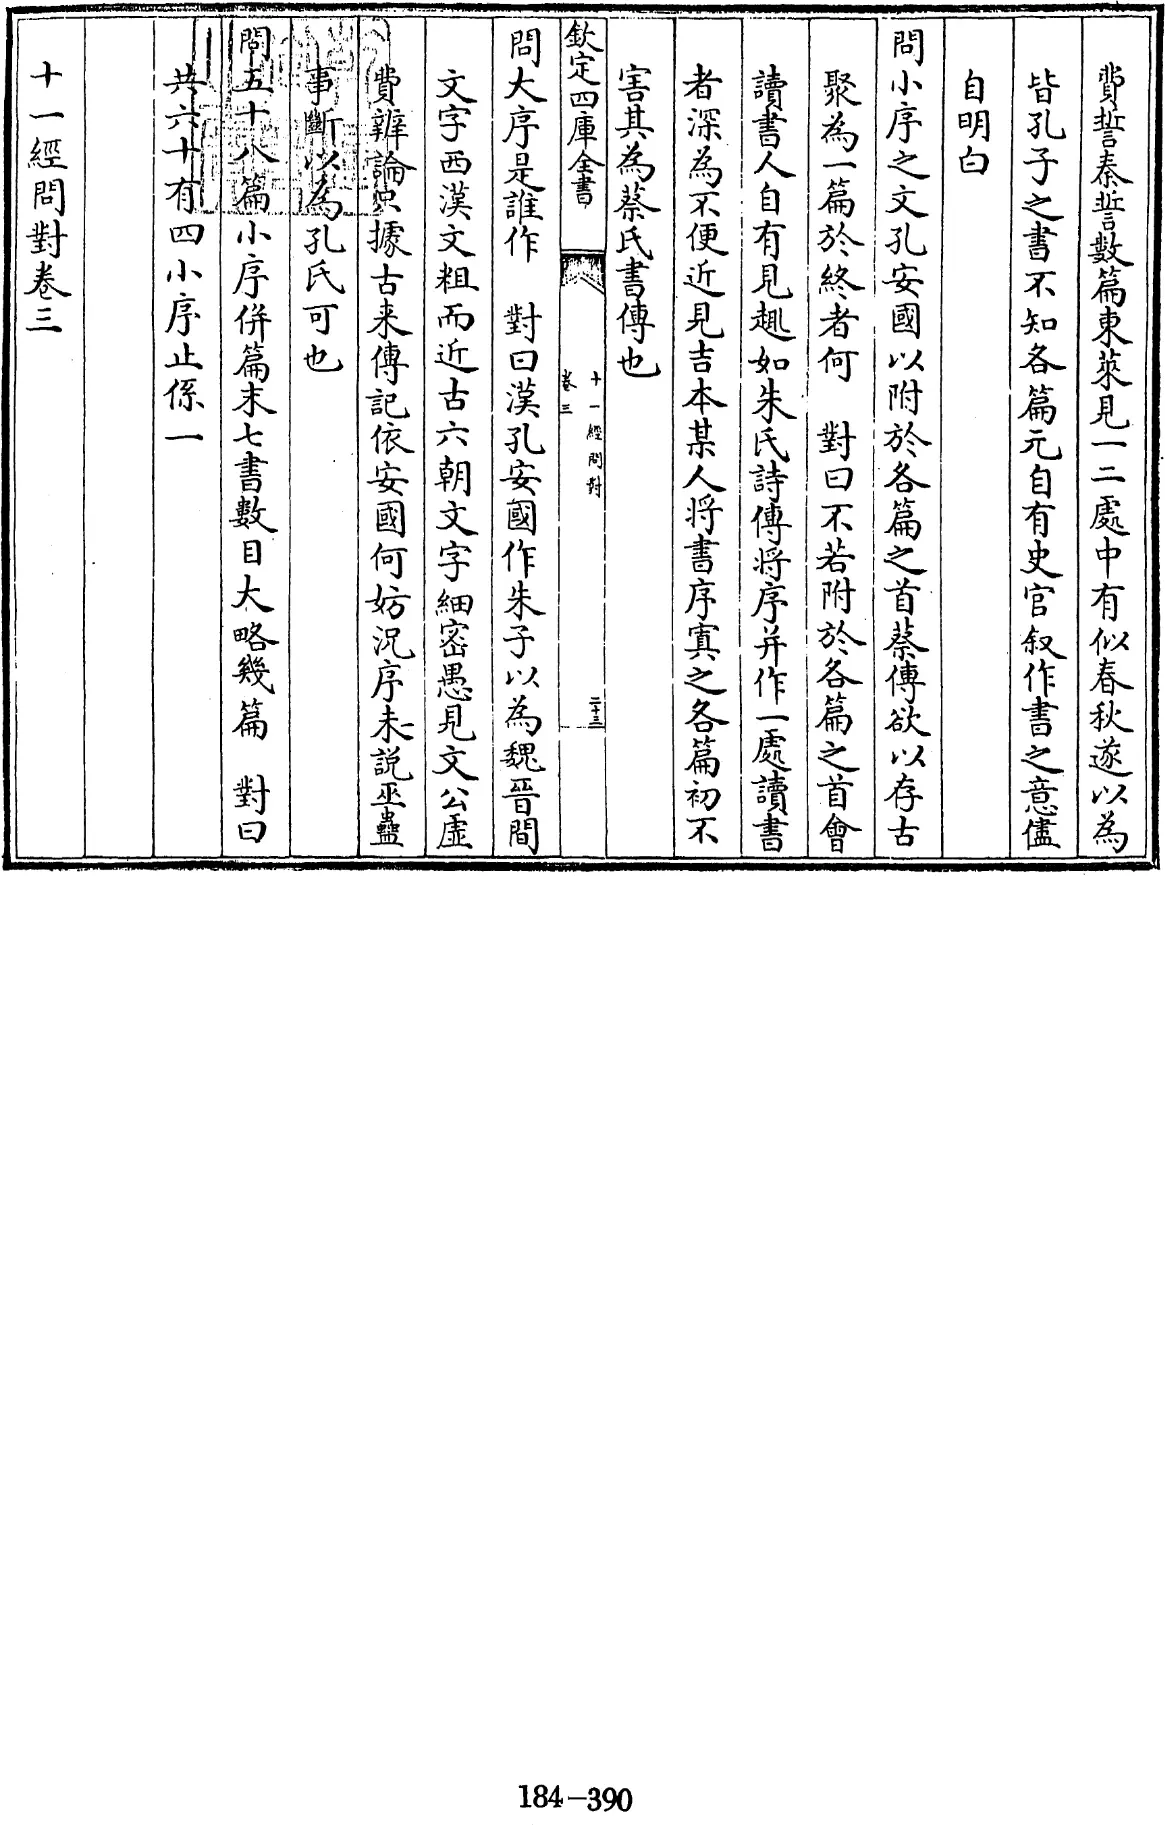 費誓秦誓數篇東萊見一二處中有似春秋遂以為
皆孔子之書不知各篇元自有史官叙作書之意儘
自明白
問小序之文孔安國以附於各篇之首蔡傳欲以存古
聚為一篇於終者何　對曰不若附於各篇之首會
讀書人自有見趣如朱氏詩傳將序并作一處讀書
者深為不便近見吉本某人將書序寘之各篇初不
害其為蔡氏書傳也
欽定四庫全書
十一經問對
卷三
二十三
問大序是誰作　對曰漢孔安國作朱子以為魏晉間
文字西漢文粗而近古六朝文字細密愚見文公虛
費辨論只據古来傳記依安國何妨況序未説巫蠱
事斷以為孔氏可也
問五十八篇小序併篇末七書數目大略幾篇　對曰
共六十有四小序止係一
十一經問對卷三
184-390